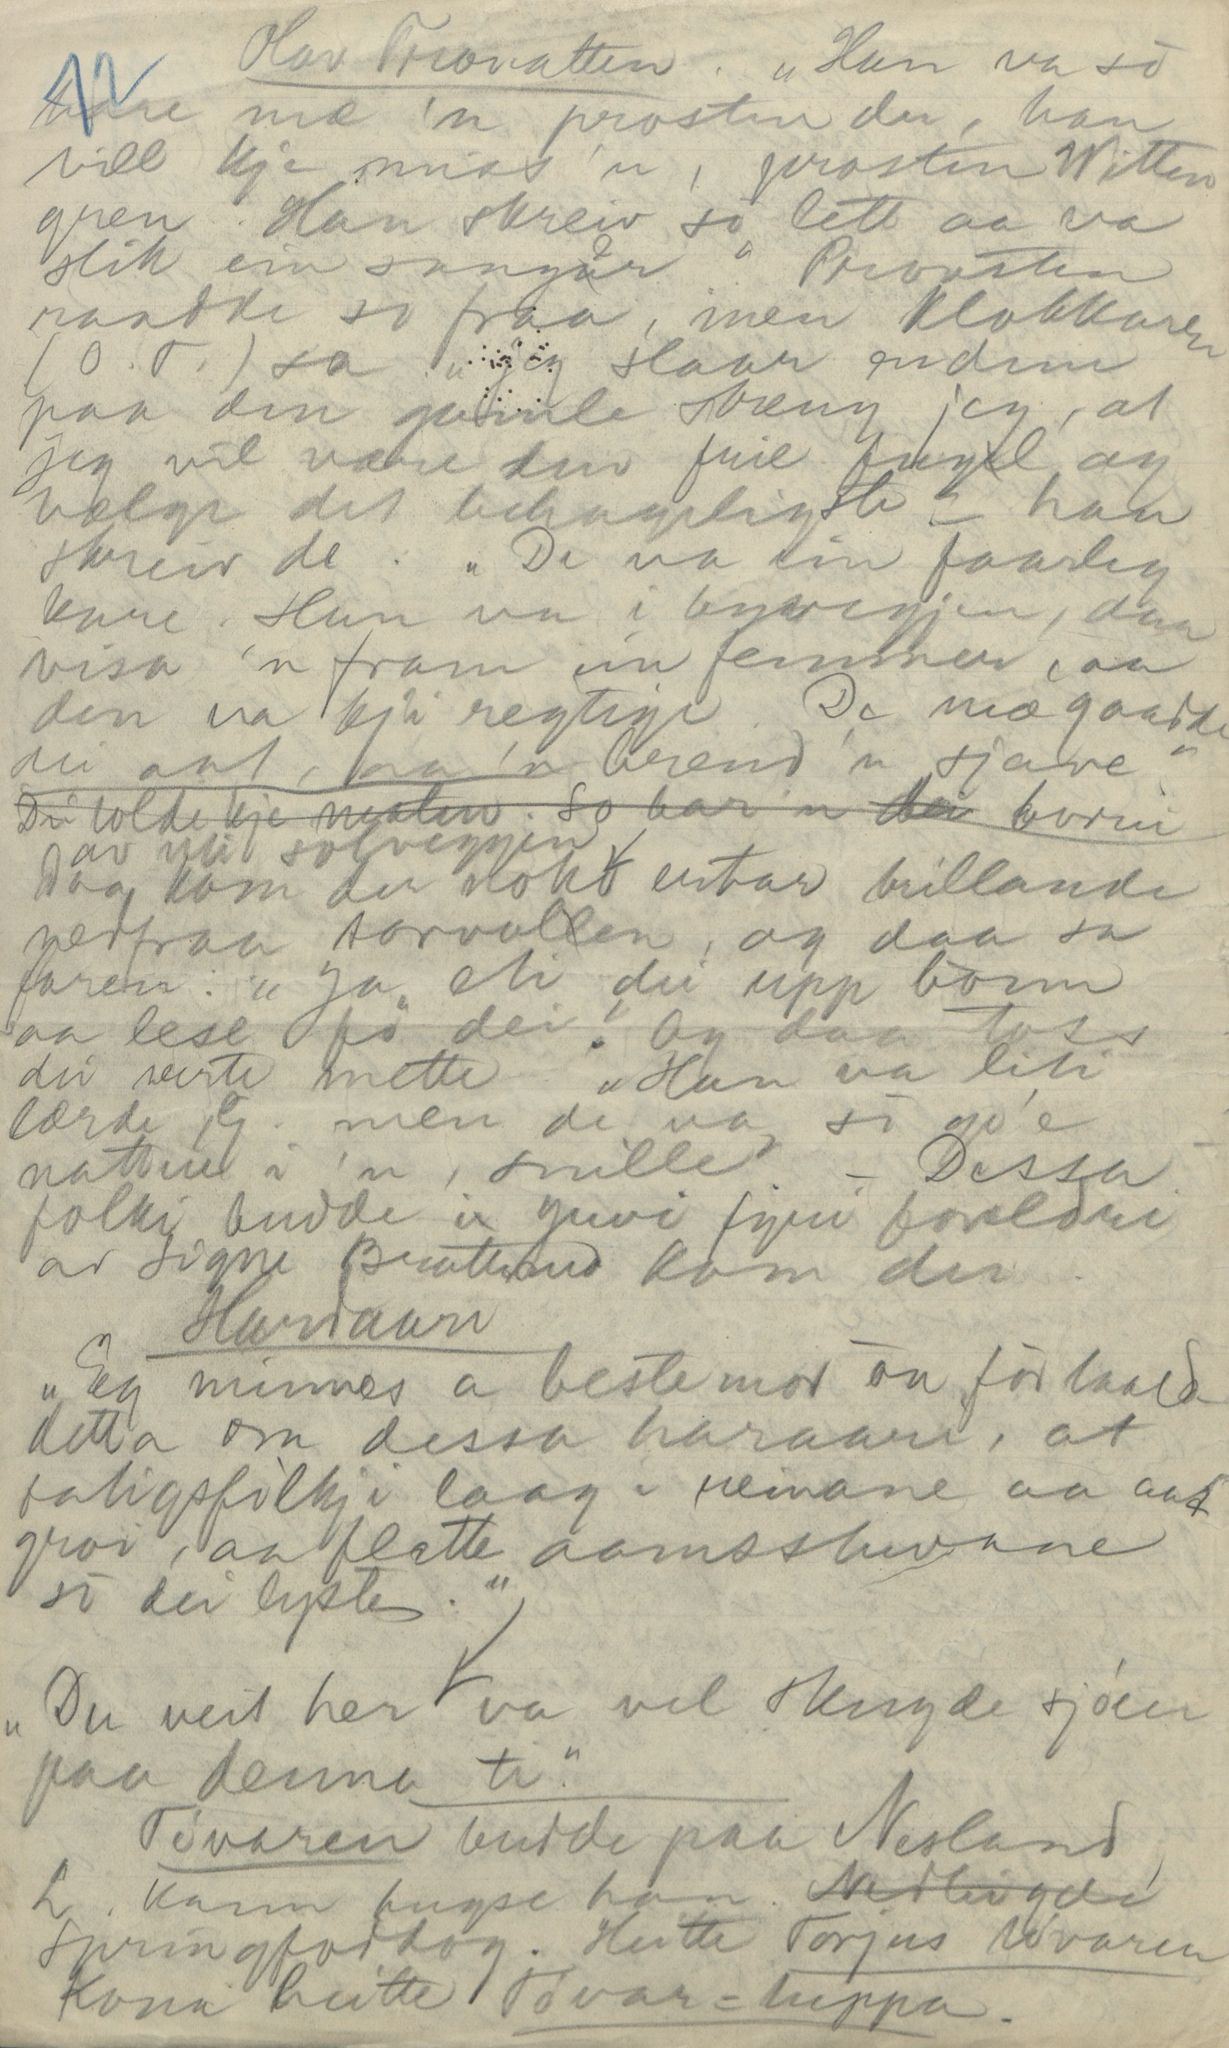 12
Olav Trovatten. „Han va so
kare mæ 'n prosten der, han
vill kje miss 'n, prosten Witten
gren. Han skreiv so lett aa va
slik ein sangar" Provsten
raadde so fraa, men Klokkaren
(O. T.) sa „jeg slaar endnu
paa den gamle streng jeg, at
jeg vil være den frie fugl og
vælge det behageligste" – han
skreiv de. „De va ein faarleg
kare. Han va i byvegjen, daa
visa 'n fram ein femmer, aa
den va kje regtige. De mæ gaadde
dei ant, aa 'n brend 'n sjave"
Dei tolde kje maten. So bar 'n dei borni
av ut i solveggjen
Daa kom der nokò urtar trillande
nedfraa torvollen, og daa sa
faren: „Ja, eti dei upp bonn
aa lese fò dei". Og daa toss
dei verte mette. „Han va liti
lærde, G. men de va so go'e
nature i 'n, snille" – Dessa
folki budde i Yuvi fyri foreldri
av Signe Brattemo kom der.
Hardaari
„Eg minnes a bestemor òn förtaalde
detta om dessa haraari, at
fatigsfölkji laag i reinane aa aat
groi, aa flætte aamsskuvane
so dei lyste."
„Du veit her va vel stengde sjóen
paa denna ti."
Tövaren budde paa Nesland,
L. kann hugse han. Nedbigdi
Springfodhog. Heitte Torjus Tövaren
Kona heitte Tövar=huppa.